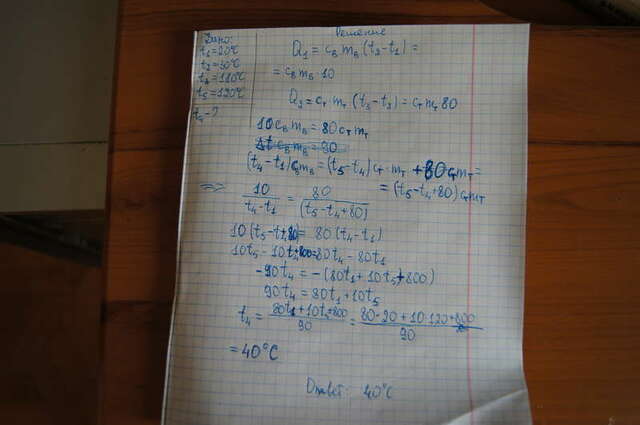 Дано:
t₁=20°C
t₂=30°C
t₃=110°C
t₅=120°C
t₄-?
Решение
Q₁ = cвmв(t₂-t₁) =
= cвmв·10
Q₂ = cт mт (t₃-t₂) = cтmт 80
10cвmв = 80cтmт
(t₄-t₁)cвmв = (t₅-t₄)cт·mт +80cтmт=
= (t₅-t₄+80)cтmт
=> 10/(t₄-t₁) = 80/(t₅-t₄+80)
10(t₅-t₄+80)= 80(t₄-t₁)
10t₅-10t₄+800=80t₄-80t₁
-90t₄ = -(80t₁+10t₅+800)
90t₄ = 80t₁+10t₅
t₄ = (80t₁+10t₅+800)/90 = (80·20+10·120+800)/90
=40°C
Ответ: 40°C